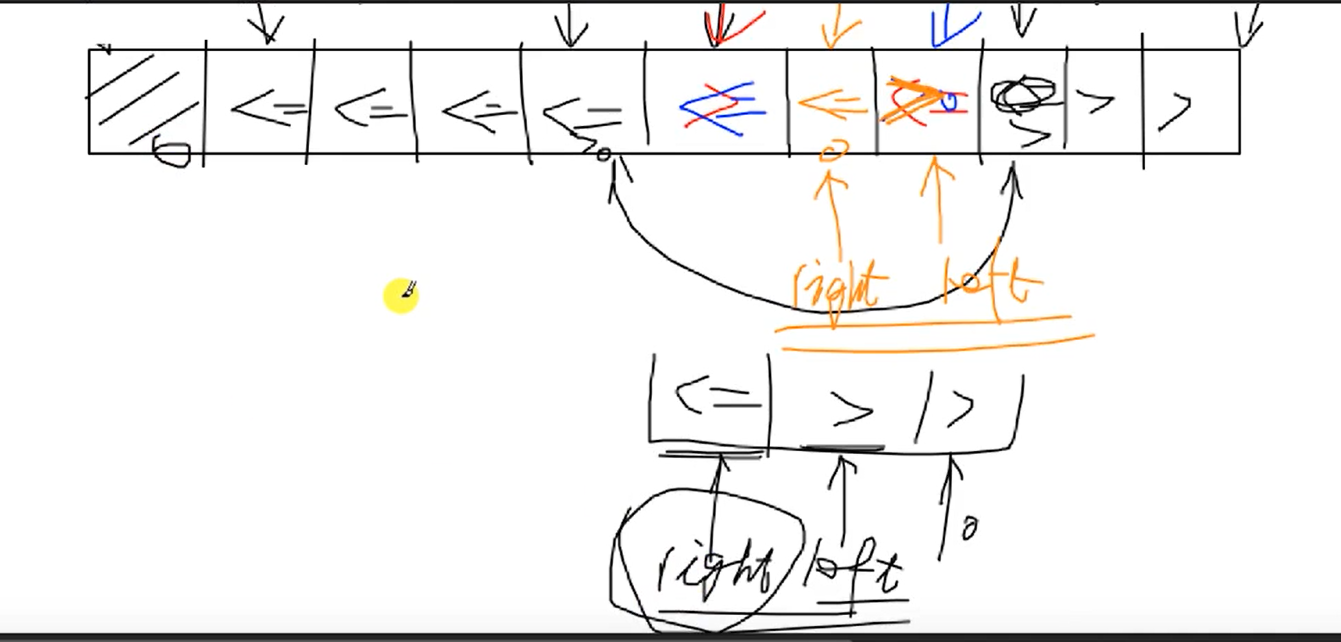 <= <= <= <= <= > >
>
right left
<= > >
right left